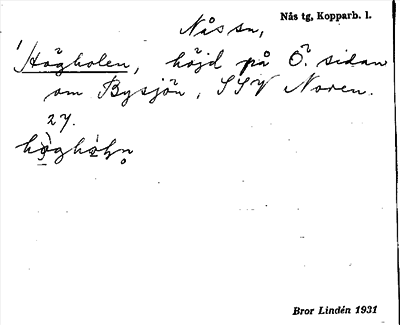 Nås sn, Nås tg, Kopparb. l.
Högholen, höjd på Ö. sidan
om Bysjön, SSV Noren.
27.
Bror Lindén 1931